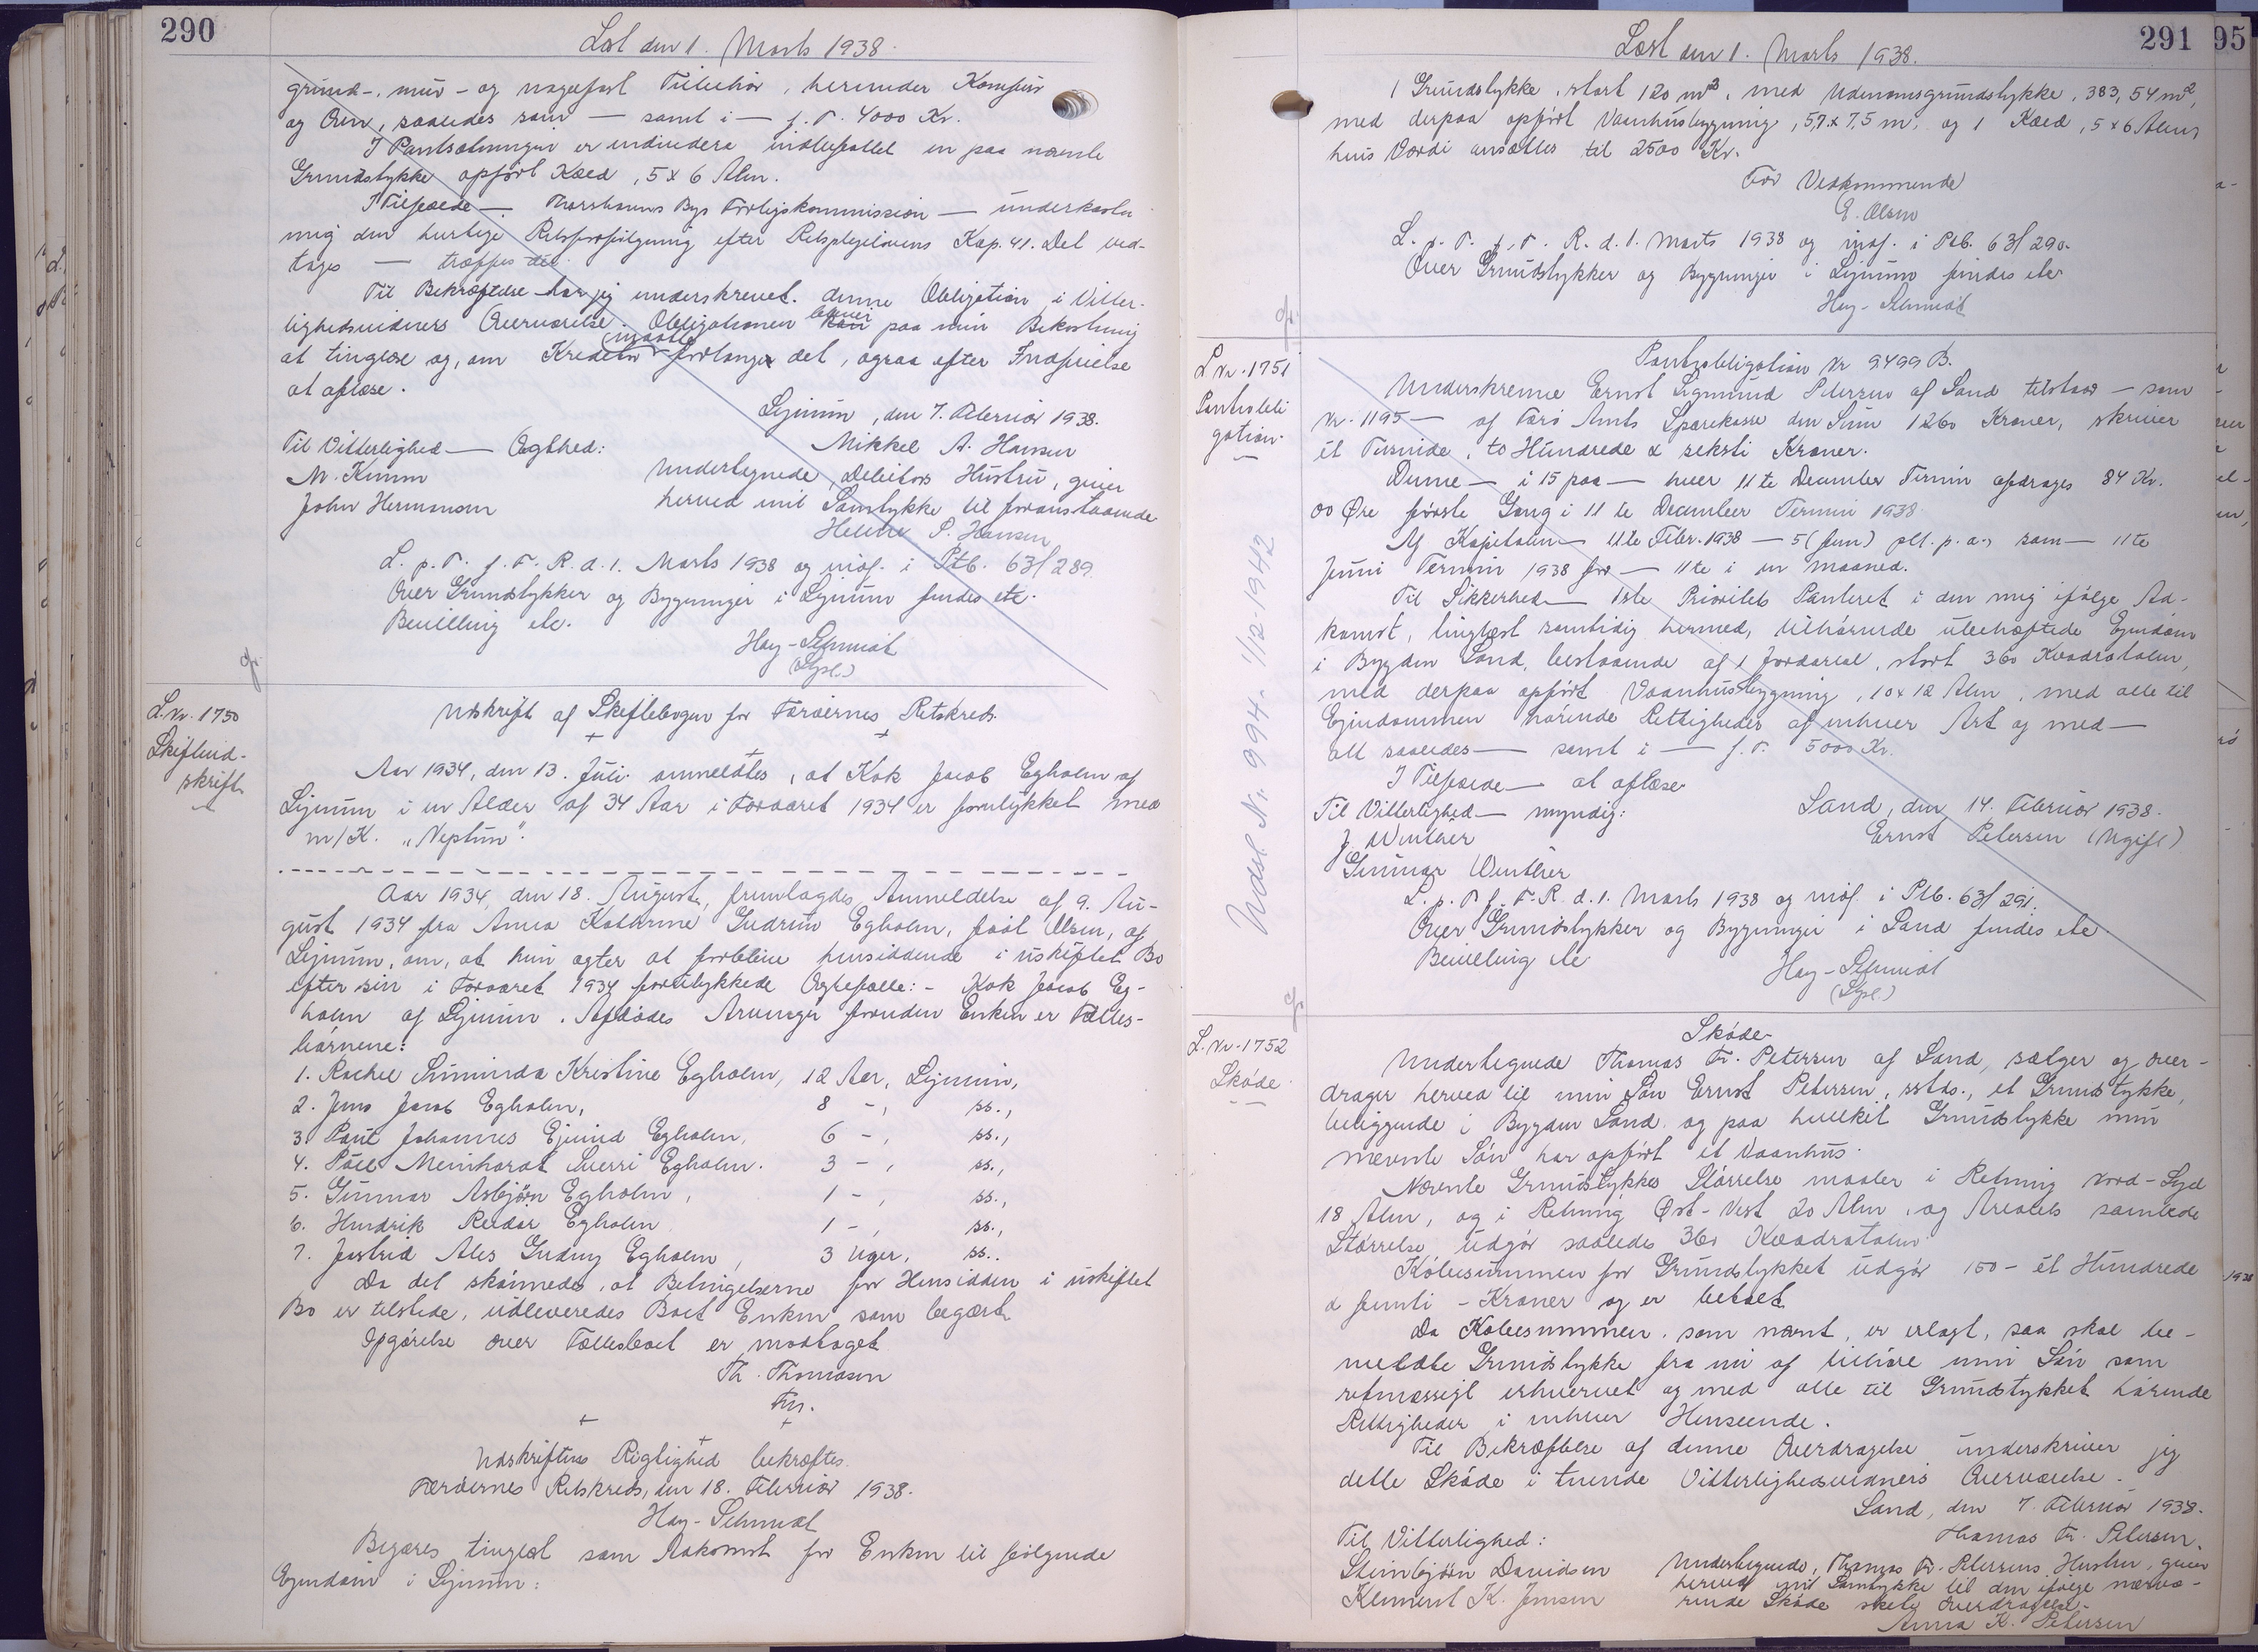 290
Læst den 1. Marts 1938.
grund-, mur- og nagelfast Tilbehør, herunder Komfur
og Ovn, saaledes som — samt i — f. T. 4000 Kr.
I Pantsætningen er endvidere indbefattet en paa nævnte
Grundstykke opført Kæld, 5 x 6 Alen.
I Tilfælde — Thorshavns Bys Forligskommission — underkaster
mig den hurtige Retsforfølgning efter Retsplejelovens Kap. 41. Det ved-
tages — træffes der.
Til Bekræftelse har jeg underskrevet denne Obligation i Vitter-
lighedsvidners Overværelse. Obligationen bliver paa min Bekostning
at tinglæse og, om Kreditor maatte forlange det, ogsaa efter Indfrielse
at aflæse.
Lejnum, den 7. Februar 1938.
Til Vitterlighed — Ægthed:
Mikkel A. Hansen
M. Kimm
Undertegnede, Debitors Hustru, giver
John Hermansen
herved mit Samtykke til foranstaaende
Helene P. Hansen
L. p. T. f. F. R. d. 1. Marts 1938 og indf. i Ptb. 63/289.
Over Grundstykker og Bygninger i Lejnum findes etc.
Bevilling etc.
Hay-Schmidt
(Lgsl.)
L. Nr. 1750
Skifteud-
skrift
Udskrift af Skiftebogen for Færøernes Retskreds.
Aar 1934, den 13. Juli anmeldtes, at Kok Jacob Egholm af
Lejnum i en Alder af 34 Aar i Foraaret 1934 er forulykket med
m/K. "Neptun".
Aar 1934, den 18. August, fremlagdes Anmeldelse af 9. Au-
gust 1934 fra Anna Katarine Gudrun Egholm, født Olsen, af
Lejnum, om, at hun agter at forblive hensiddende i uskiftet Bo
efter sin i Foraaret 1934 forulykkede Ægtefælle: - Kok Jacob Eg-
holm af Lejnum. Afdødes Arvinger foruden Enken er Fælles-
børnene:
1. Rachel Suninda Kristine Egholm, 12 Aar, Lejnum,
2. Jens Jacob Egholm, 8 -, ss.,
3. Paul Johannes Ejvind Egholm, 6 -, ss.,
4. Póll Meinhardt Sverri Egholm. 3 -, ss.,
5. Gunnar Asbjørn Egholm, 1 -, ss.,
6. Hendrik Reidar Egholm 1 -, ss.,
7. Jastrid Alis Gudny Egholm, 3 Uger, ss..
Da det skønnedes, at Betingelserne for Hensidden i uskiftet
Bo er tilstede, udleveredes Boet Enken som begært.
Opgørelse over Fællesboet er modtaget
Th. Thomasen
Fm.
Udskriftens Rigtighed bekræftes.
Færøernes Retskreds, den 18. Februar 1938.
Hay-Schmidt
Begæres tinglæst som Adkomst for Enken til følgende
Ejendom i Lejnum:
291
95
Læst den 1. Marts 1938.
1 Grundstykke, stort 120 m², med Udenomsgrundstykke, 383,54 m²,
med derpaa opført Vaanhusbygning, 5,7 x 7,5 m, og 1 Kæld, 5 x 6 Alen,
hvis Værdi ansættes til 2500 Kr.
For Vedkommende
E. Olsen
L. p. T. f. F. R. d. 1. Marts 1938 og indf. i Ptb. 63/290.
Over Grundstykker og Bygninger i Lejnum findes etc
Hay-Schmidt
L. Nr. 1751
Pantobli
gation.
Udsl. Nr. 994. 1/2-1942
Pantobligation Nr 9499 B.
Underskrevne Ernst Sigmund Petersen af Sand tilstaar — som
Nr. 1195 — af Færø Amts Sparekasse den Sum 1260 Kroner, skriver
ét Tusinde, to Hundrede & seksti Kroner.
Denne — i 15 paa — hver 11te December Termin afdrages 84 Kr.
00 Øre første Gang i 11te December Termin 1938
Af Kapitalen — 11te Febr. 1938 — 5 (fem) pCt. p. a., som — 11te
Juni Termin 1938 for — 11te i en Maaned.
Til Sikkerhed — 1ste Prioritets Panteret i den mig ifølge Ad-
komst, tinglæst samtidig hermed, tilhørende ubehæftede Ejendom
i Bygden Sand, bestaaende af 1 Jordareal, stort 360 Kvadratalen,
med derpaa opført Vaanhusbygning, 10 x 12 Alen, med alle til
Ejendommen hørende Rettigheder af enhver Art og med —
alt saaledes — samt i — f. T. 5000 Kr.
I Tilfælde — at aflæse
Til Vitterlighed — myndig:
Sand, den 14. Februar 1938.
J. Winther
Ernst Petersen (Ugift)
Gunnar Winther
L. p. T. f. F. R. d. 1. Marts 1938 og indf. i Ptb. 63/291.
Over Grundstykker og Bygninger i Sand findes etc
Bevilling etc
Hay-Schmidt
(Lgsl.)
L. Nr. 1752
Skøde.
Skøde
Undertegnede Thomas Fr. Petersen af Sand, sælger og over-
drager herved til min Søn Ernst Petersen, sstds., et Grundstykke,
beliggende i Bygden Sand og paa hvilket Grundstykke min
nævnte Søn har opført et Vaanhus.
Nævnte Grundstykkes Størrelse maaler i Retning Nord-Syd
18 Alen, og i Retning Øst-Vest 20 Alen, og Arealets samlede
Størrelse udgør saaledes 360 Kvadratalen.
Købesummen for Grundstykket udgør 150 - ét Hundrede
& femti - Kroner og er betalt.
Da Købesummen, som nævnt, er erlagt, saa skal be-
meldte Grundstykke fra nu af tilhøre min Søn som
retmæssigt erhvervet og med alle til Grundstykket hørende
Rettigheder i enhver Henseende.
Til Bekræftelse af denne Overdragelse underskriver jeg
dette Skøde i tvende Vitterlighedsvidners Overværelse.
Sand, den 7. Februar 1938.
Til Vitterlighed:
Thomas Fr. Petersen.
Steinbjørn Davidsen
Klement K. Jensen
Undertegnede, Thomas Fr. Petersens Hustru, giver
herved mit Samtykke til den ifølge nærvæ-
rende Skøde skete Overdragelse.
Anna K. Petersen